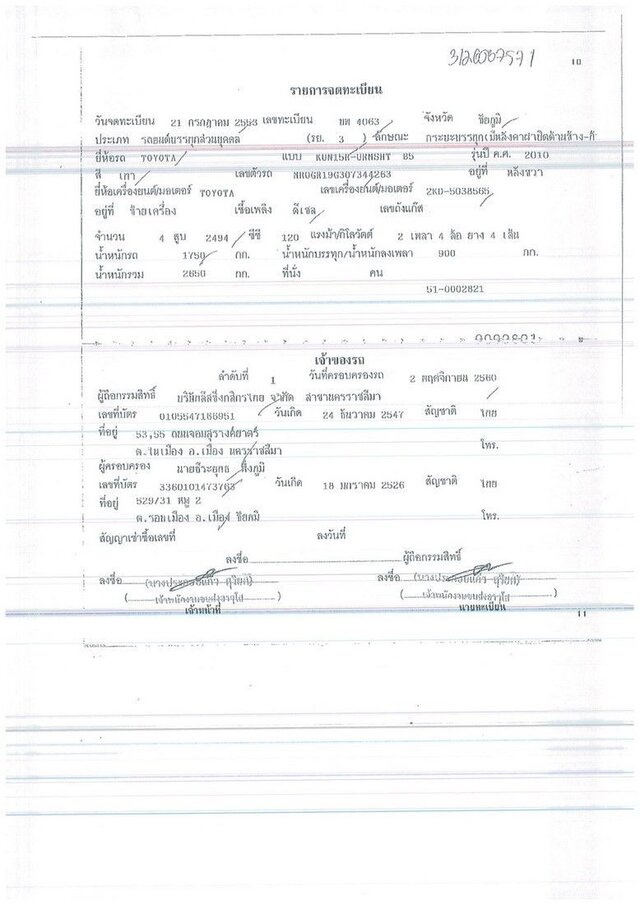 3126537571
10
รายการจดทะเบียน
วันจดทะเบียน 21 กรกฎาคม 2553 เลขทะเบียน บท 4063 จังหวัด ชัยภูมิ
ประเภท รถยนต์บรรทุกส่วนบุคคล (รย. 3 ) ลักษณะ กระบะบรรทุก(มีหลังคาฝาปิดด้านข้าง-ท้
ยี่ห้อรถ TOYOTA แบบ KUN15R-URMSHT 85 รุ่นปี ค.ศ. 2010
สี เทา เลขตัวรถ MR0GR19G307344263 อยู่ที่ หลังขวา
ยี่ห้อเครื่องยนต์/มอเตอร์ TOYOTA เลขเครื่องยนต์/มอเตอร์ 2KD-5038565
อยู่ที่ ซ้ายเครื่อง เชื้อเพลิง ดีเซล เลขถังแก๊ส
จำนวน 4 สูบ 2494 ซีซี 120 แรงม้า/กิโลวัตต์ 2 เพลา 4 ล้อ ยาง 4 เส้น
น้ำหนักรถ 1750 กก. น้ำหนักบรรทุก/น้ำหนักลงเพลา 900 กก.
น้ำหนักรวม 2650 กก. ที่นั่ง คน
51-0002821
เจ้าของรถ
ลำดับที่ 1 วันที่ครอบครองรถ 2 พฤศจิกายน 2560
ผู้ถือกรรมสิทธิ์ บริษัทลีสซิ่งกสิกรไทย จำกัด สาขานครราชสีมา
เลขที่บัตร 0105547166951 วันเกิด 24 ธันวาคม 2547 สัญชาติ ไทย
ที่อยู่ 53,55 ถนนจอมสุรางค์ยาตร์
ต.ในเมือง อ.เมือง นครราชสีมา โทร.
ผู้ครอบครอง นายธีระยุทธ สิงภูมิ
เลขที่บัตร 3360101473763 วันเกิด 18 มกราคม 2526 สัญชาติ ไทย
ที่อยู่ 529/31 หมู่ 2
ต.รอบเมือง อ.เมือง ชัยภูมิ โทร.
สัญญาเช่าซื้อเลขที่ ลงวันที่
ลงชื่อ ผู้ถือกรรมสิทธิ์
ลงชื่อ (นางประกอบแก้ว สุริยศ) ลงชื่อ (นางประกอบแก้ว สุริยศ)
(เจ้าพนักงานขนส่งอาวุโส) (เจ้าพนักงานขนส่งอาวุโส)
เจ้าหน้าที่ นายทะเบียน
11